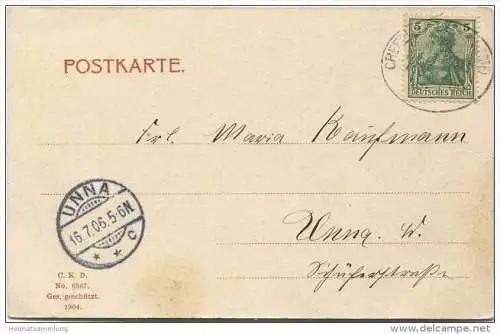 5 5
DEUTSCHES REICH
CREF
POSTKARTE.
Frl. Maria Kaufmann
UNNA
16.7.06.5-6N
* * c
Unna. W.
Schäferstraße
C. K. D.
No. 6567.
Ges. geschützt.
1904.
Heimatsammlung
www.heimatsammlung.de